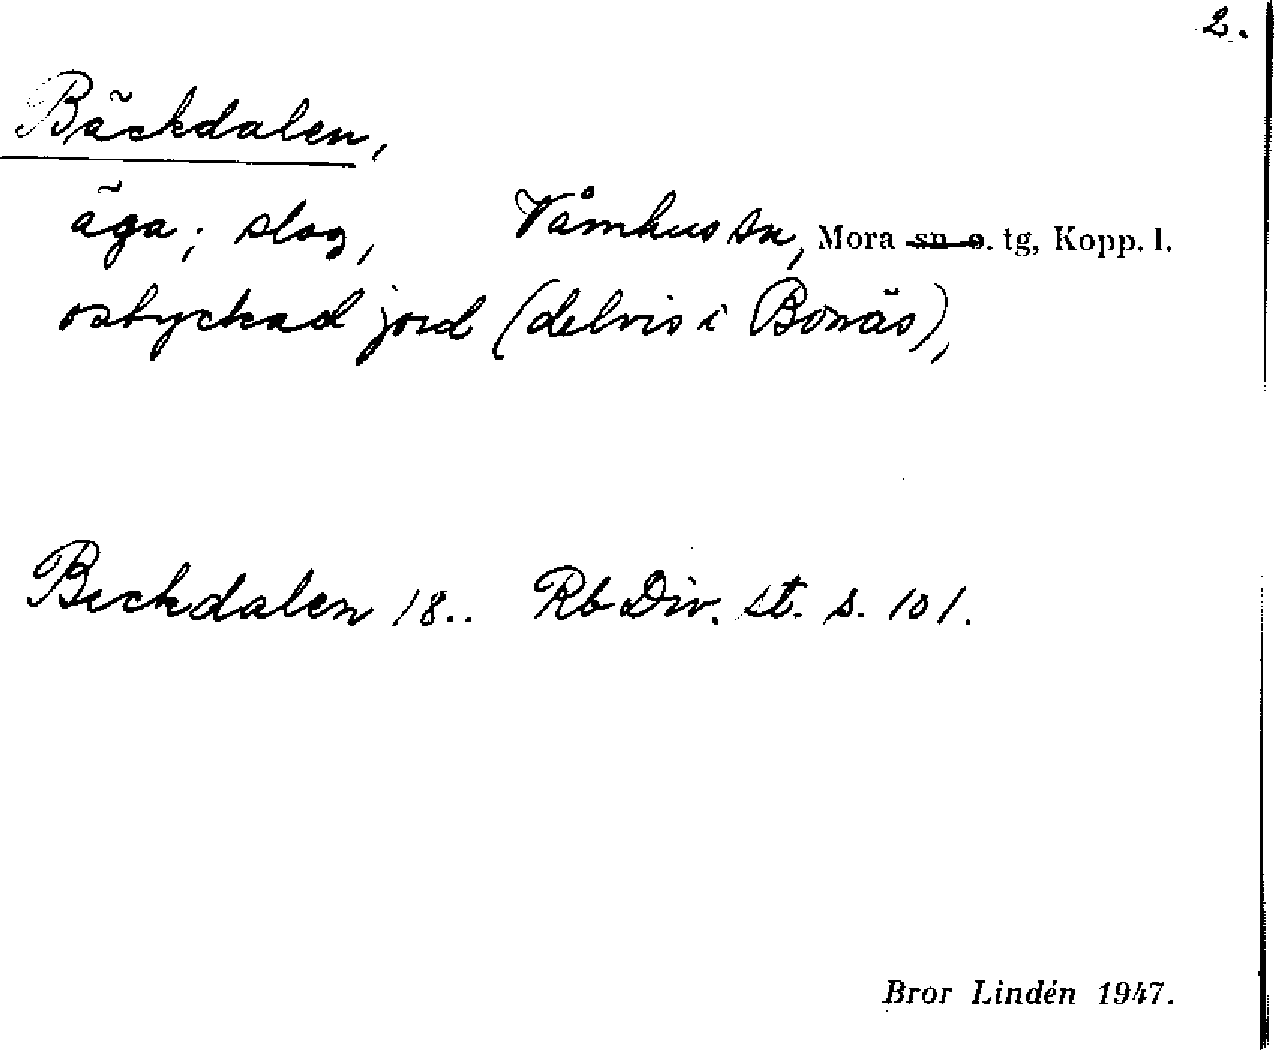 2.
Bäckdalen,
äga; slog, Våmhus sn, Mora sn o. tg, Kopp. l.
ostyckad jord (delvis i Bonäs),
Beckdalen 18.. Rb Div. st. s. 101.
Bror Lindén 1947.